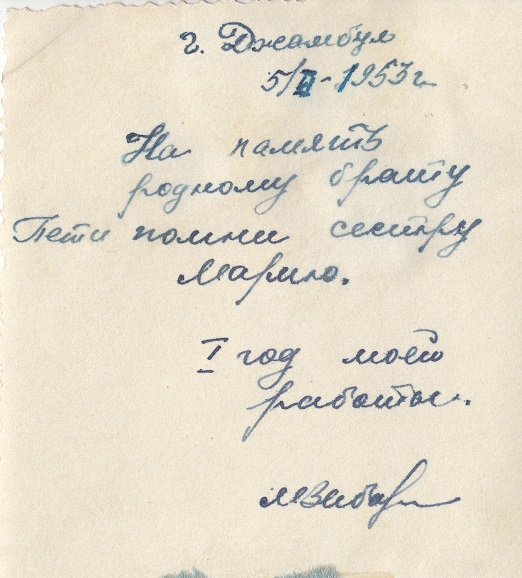 г. Джамбул
5/II-1953г
На память
родному брату
Пети помни сестру
Марию.
I год моей
работы.